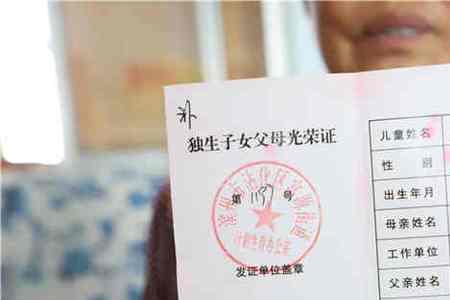 补
独生子女父母光荣证
第 1137 号
计划生育办公室
发证单位盖章
儿童姓名
性 别
出生年月
母亲姓名
工作单位
父亲姓名